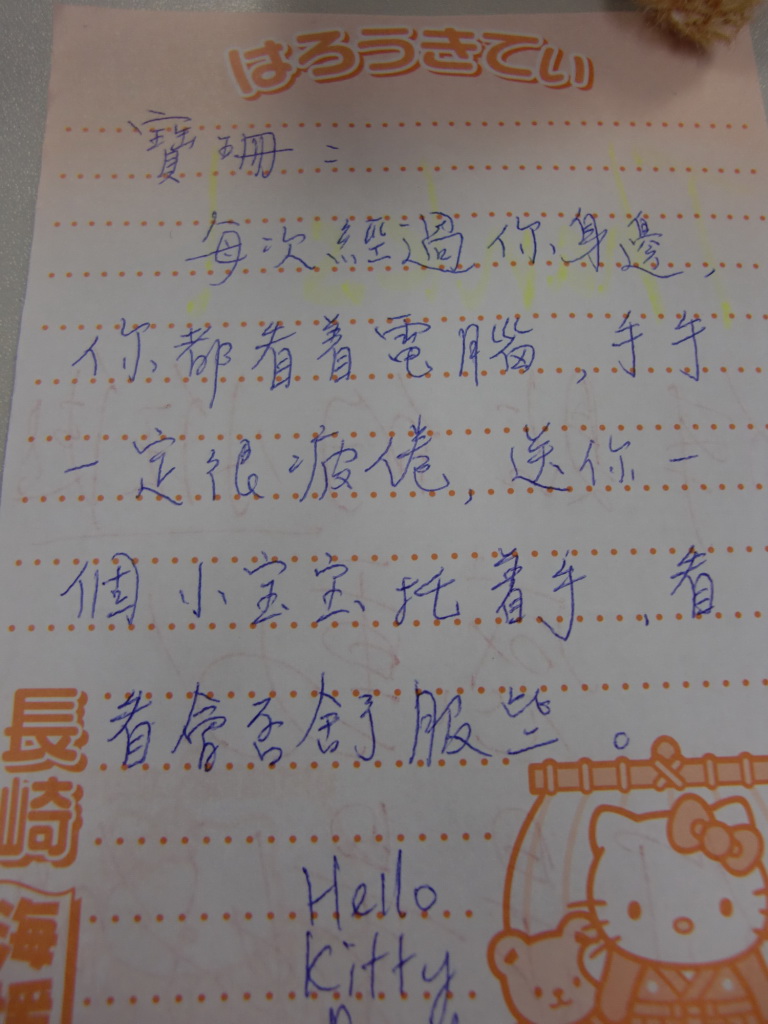 はろうきてぃ
寶珊：
每次經過你身邊，
你都看着電腦，手手
一定很疲倦，送你一
個小宝宝托着手，看
看會否舒服些。
Hello
Kitty
長崎